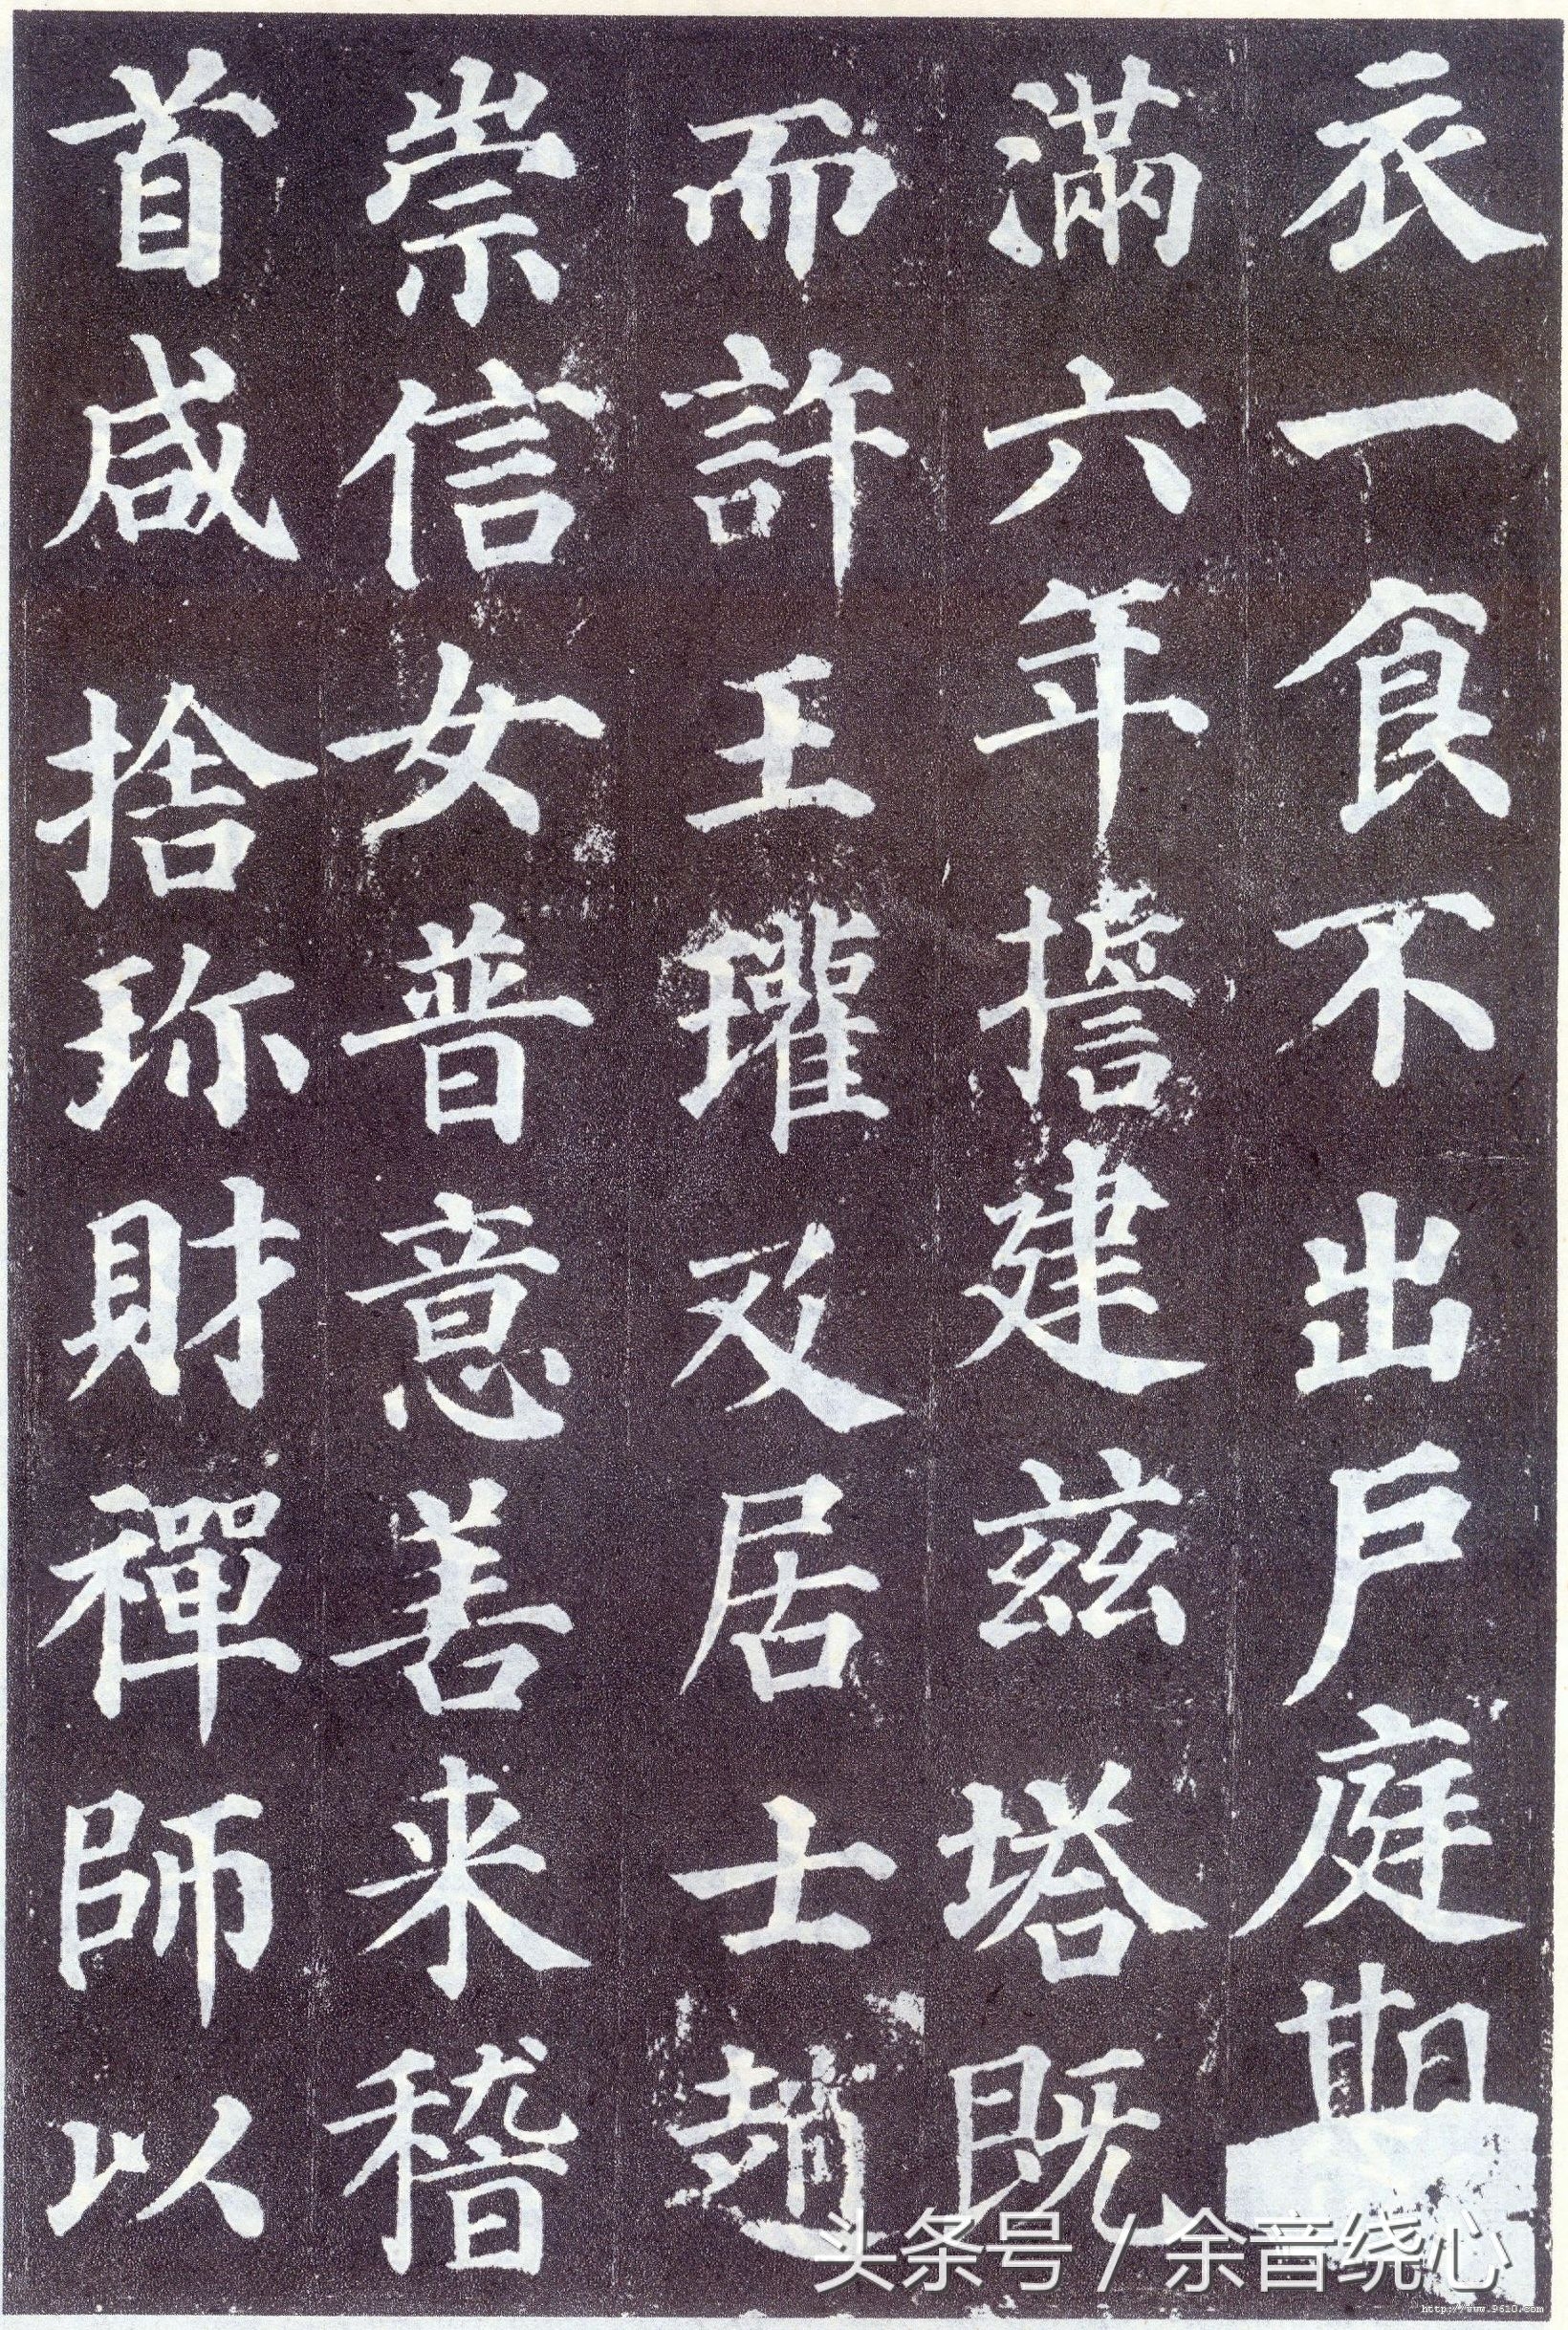 衣一食不出戶庭期
滿六年擔建兹塔既
而許王瓘及居士趙
崇信女普意善来稽
首咸捨珎財禪師以
头条号 / 余音绕心
http://www.9610.com